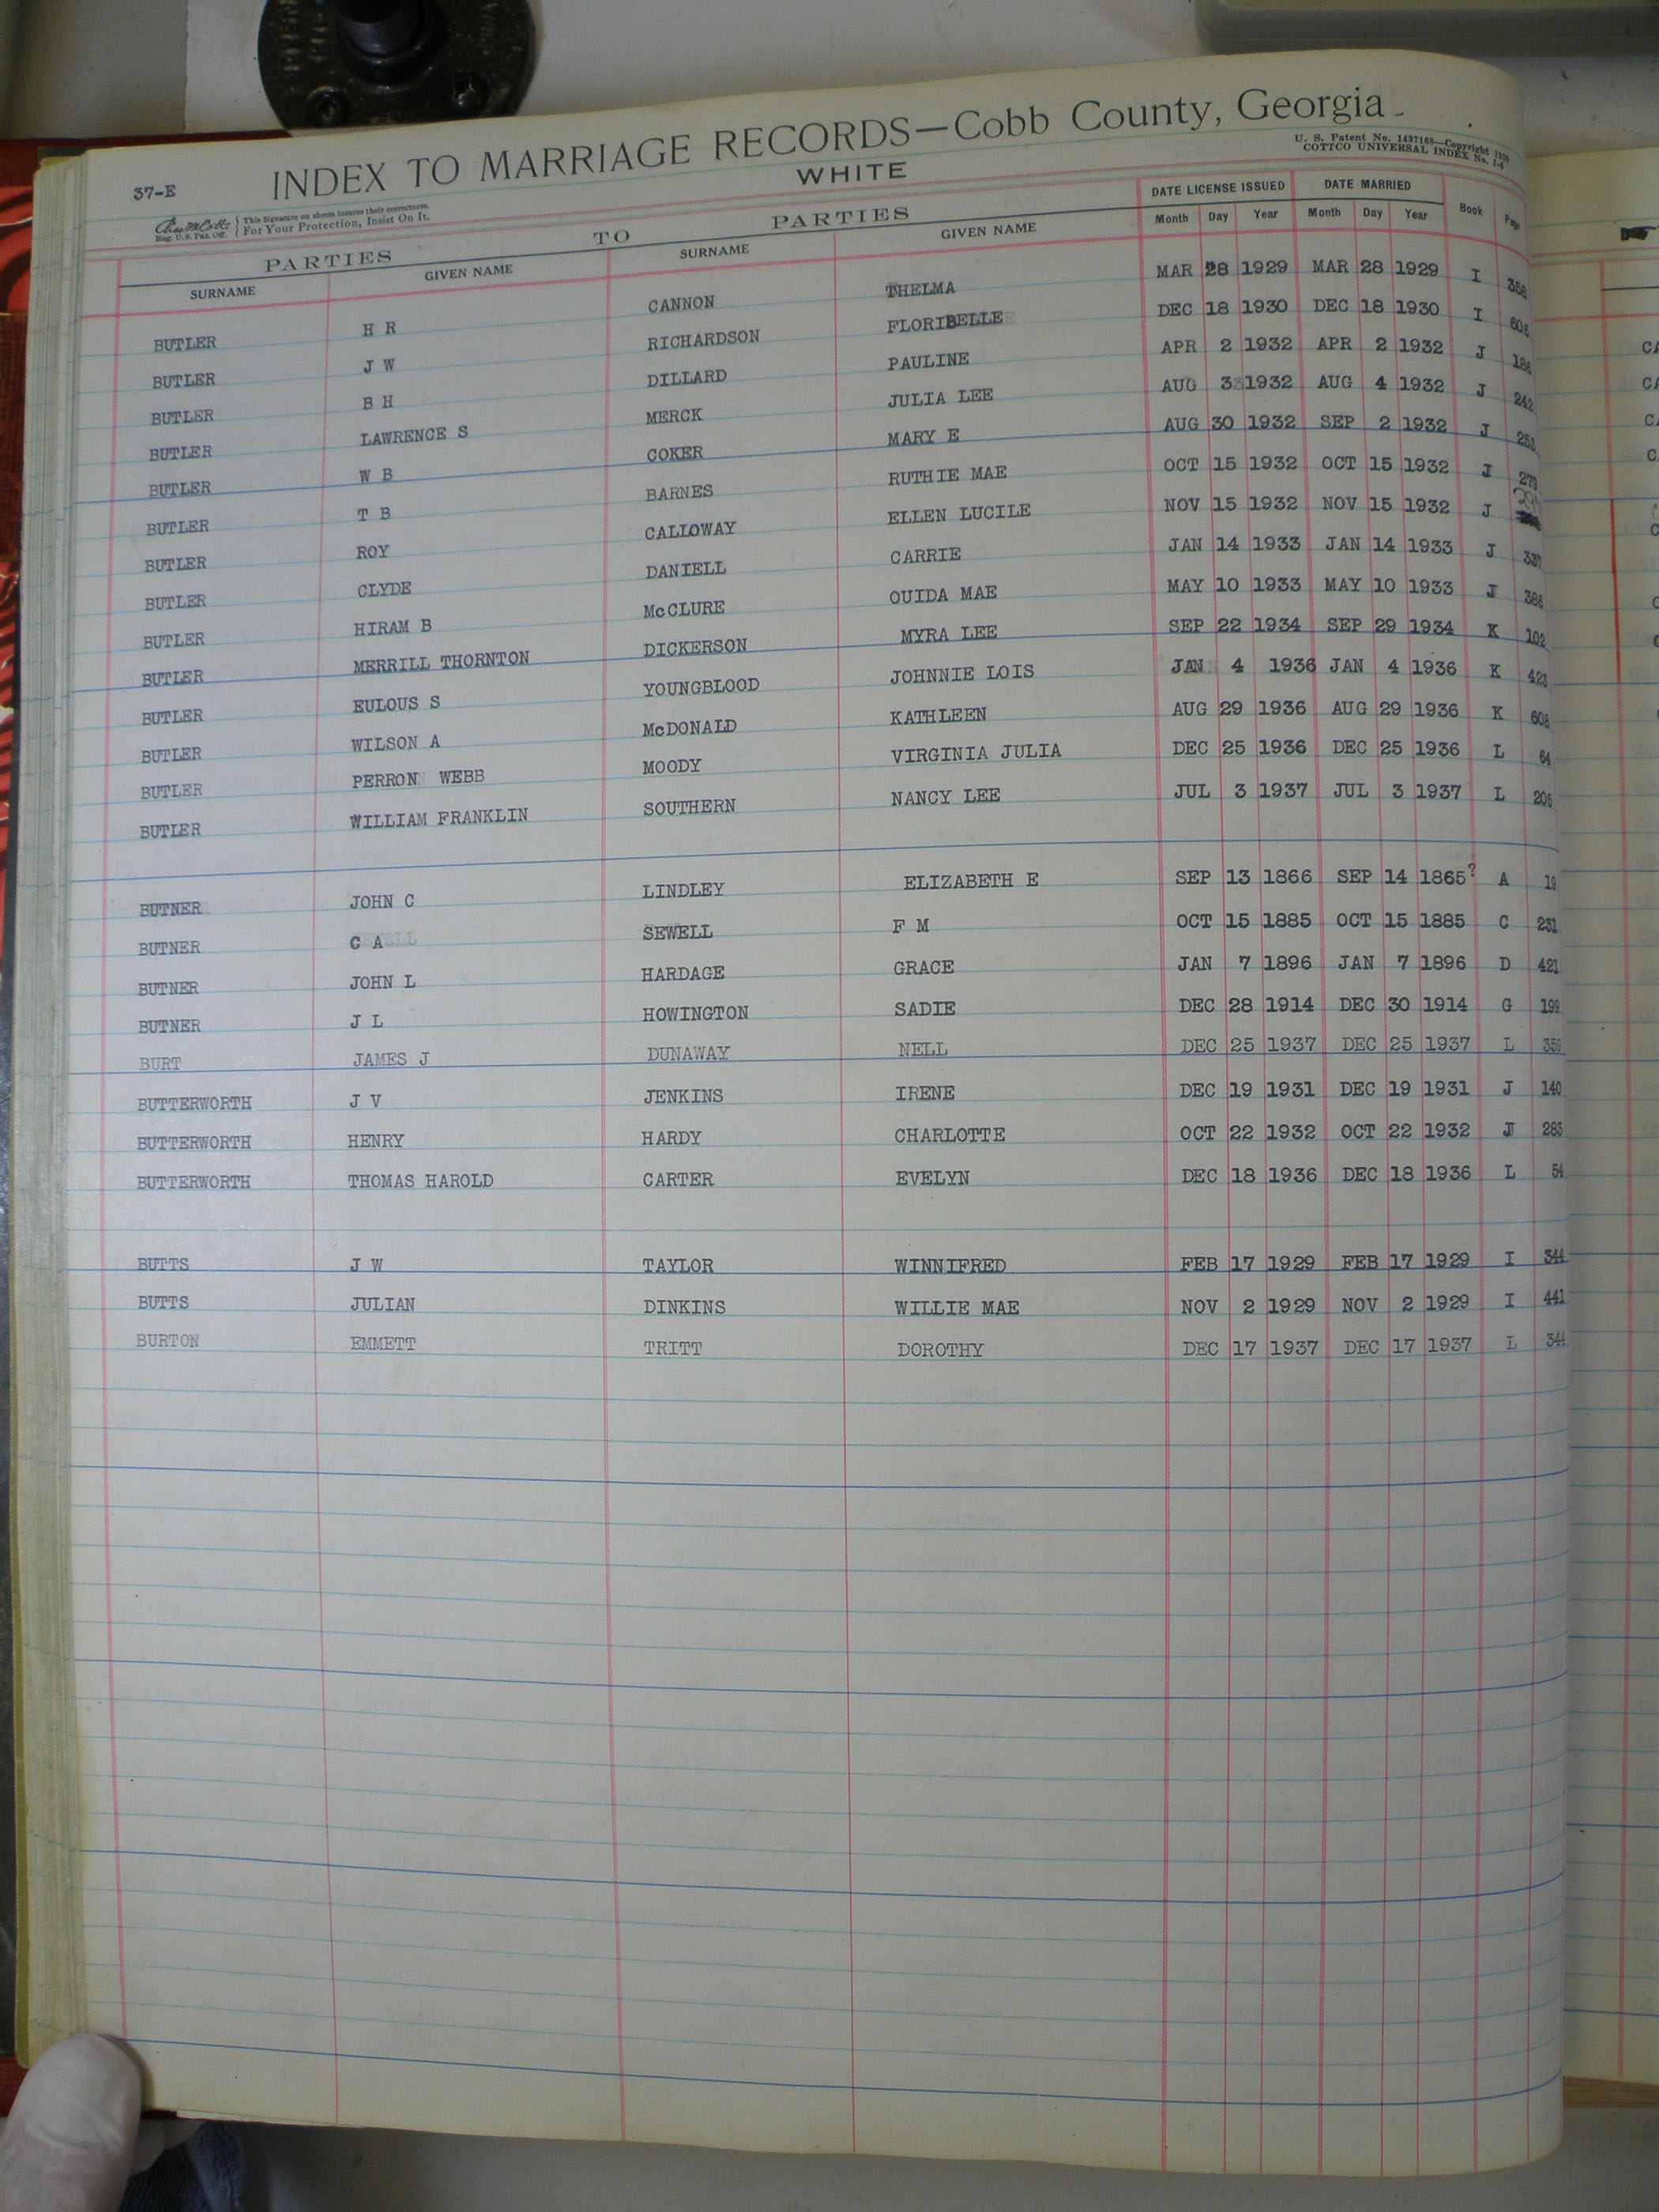 37-E INDEX TO MARRIAGE RECORDS—Cobb County, Georgia
WHITE
U. S. Patent No. 1437168—Copyright
COTTCO UNIVERSAL INDEX No. 1-4
Reg. U.S. Pat. Off. This Signature on sheets insures their correctness.
For Your Protection, Insist On It.
PARTIES TO PARTIES DATE LICENSE ISSUED DATE MARRIED
SURNAME GIVEN NAME SURNAME GIVEN NAME Month Day Year Month Day Year Book Page
BUTLER H R CANNON THELMA MAR 28 1929 MAR 28 1929 I 358
BUTLER J W RICHARDSON FLORIBELLE DEC 18 1930 DEC 18 1930 I 608
BUTLER B H DILLARD PAULINE APR 2 1932 APR 2 1932 J 186
BUTLER LAWRENCE S MERCK JULIA LEE AUG 3 1932 AUG 4 1932 J 242
BUTLER W B COKER MARY E AUG 30 1932 SEP 2 1932 J 253
BUTLER T B BARNES RUTHIE MAE OCT 15 1932 OCT 15 1932 J 279
BUTLER ROY CALLOWAY ELLEN LUCILE NOV 15 1932 NOV 15 1932 J
BUTLER CLYDE DANIELL CARRIE JAN 14 1933 JAN 14 1933 J 337
BUTLER HIRAM B McCLURE OUIDA MAE MAY 10 1933 MAY 10 1933 J 386
BUTLER MERRILL THORNTON DICKERSON MYRA LEE SEP 22 1934 SEP 29 1934 K 102
BUTLER EULOUS S YOUNGBLOOD JOHNNIE LOIS JAN 4 1936 JAN 4 1936 K 423
BUTLER WILSON A McDONALD KATHLEEN AUG 29 1936 AUG 29 1936 K 608
BUTLER PERRON WEBB MOODY VIRGINIA JULIA DEC 25 1936 DEC 25 1936 L 64
BUTLER WILLIAM FRANKLIN SOUTHERN NANCY LEE JUL 3 1937 JUL 3 1937 L 205
BUTNER JOHN C LINDLEY ELIZABETH E SEP 13 1866 SEP 14 1865? A 19
BUTNER C A SEWELL F M OCT 15 1885 OCT 15 1885 C 231
BUTNER JOHN L HARDAGE GRACE JAN 7 1896 JAN 7 1896 D 421
BUTNER J L HOWINGTON SADIE DEC 28 1914 DEC 30 1914 G 199
BURT JAMES J DUNAWAY NELL DEC 25 1937 DEC 25 1937 L 359
BUTTERWORTH J V JENKINS IRENE DEC 19 1931 DEC 19 1931 J 140
BUTTERWORTH HENRY HARDY CHARLOTTE OCT 22 1932 OCT 22 1932 J 283
BUTTERWORTH THOMAS HAROLD CARTER EVELYN DEC 18 1936 DEC 18 1936 L 54
BUTTS J W TAYLOR WINNIFRED FEB 17 1929 FEB 17 1929 I 344
BUTTS JULIAN DINKINS WILLIE MAE NOV 2 1929 NOV 2 1929 I 441
BURTON EMMETT TRITT DOROTHY DEC 17 1937 DEC 17 1937 L 344